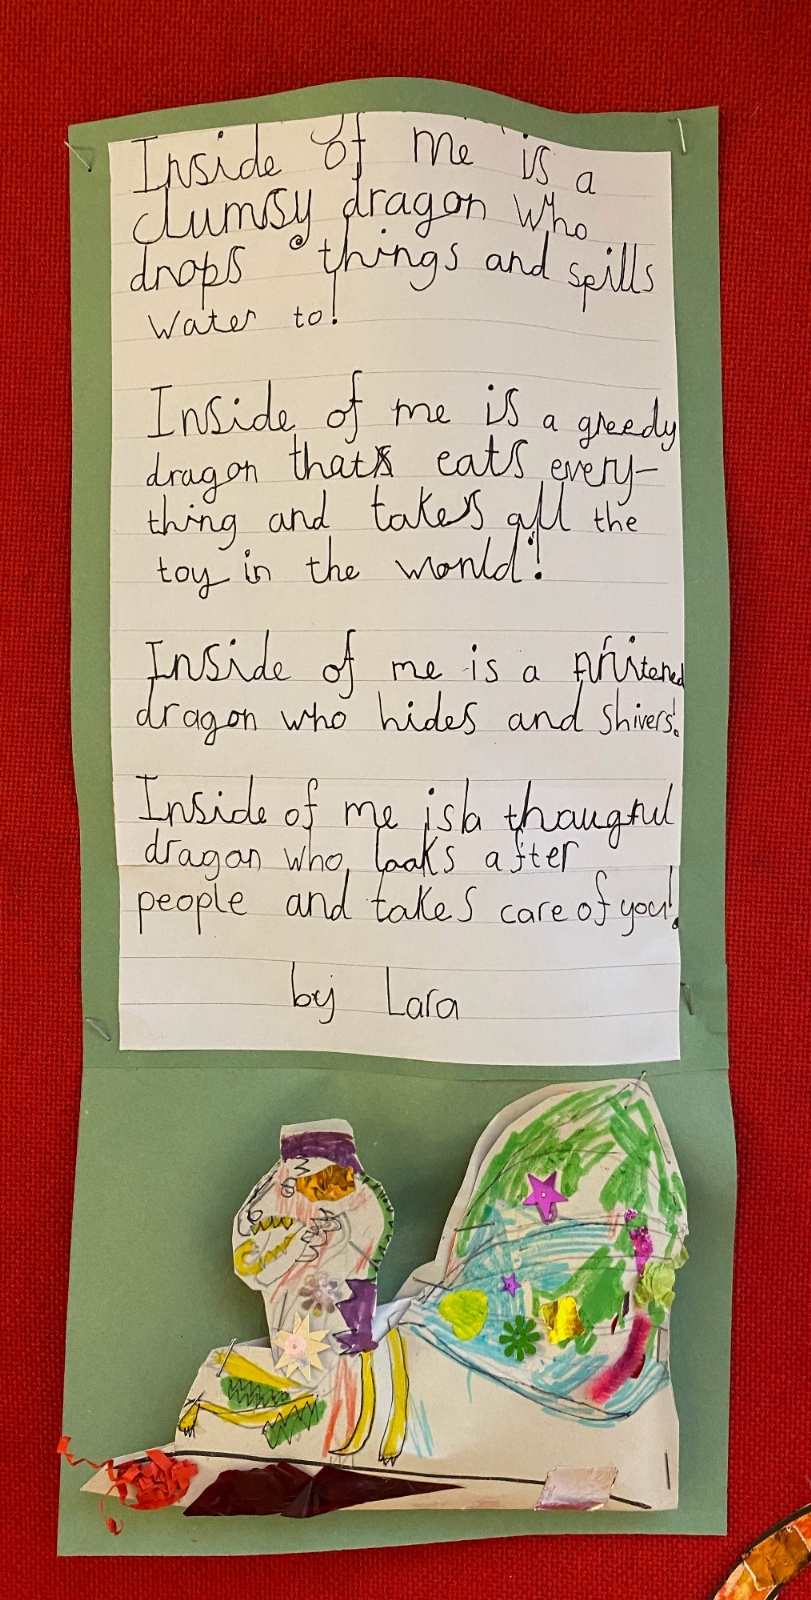 Inside of me is a
clumsy dragon who
drops things and spills
water to!
Inside of me is a greedy
dragon that eats every-
thing and takes all the
toy in the world!
Inside of me is a
dragon who hides and shivers!
Inside of me is a thaugful
dragon who looks after
people and takes care of you!
by Lara